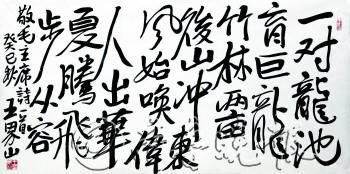 一对龍池
育巨龍
竹林两亩
後山冲東
風始唤偉
人出華
夏騰飛
步从容
敬毛主席詩一首
癸巳秋
王男山